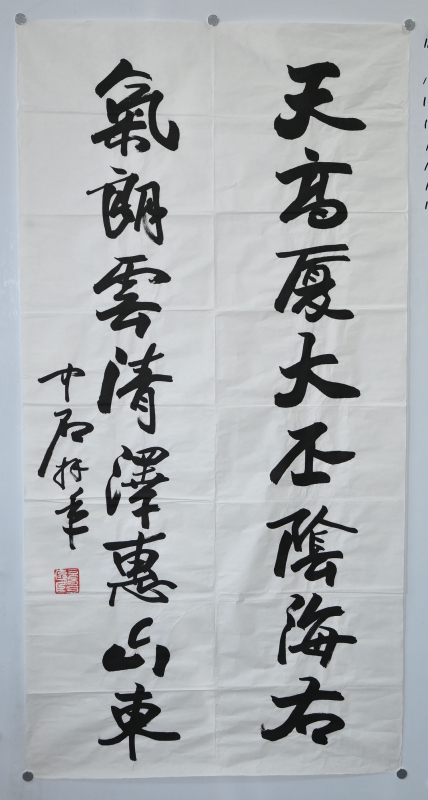 天高厦大丕陰海右
氣朗雲清澤惠山東
中石拜筆